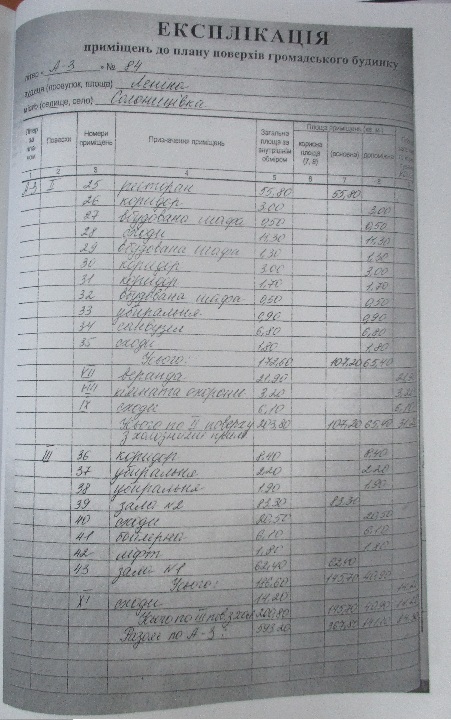 ЕКСПЛІКАЦІЯ
приміщень до плану поверхів громадського будинку
А-3 № 84
(провулок, площа) Леніна
місто (селище, село) Солоницівка
Поверхи Номери приміщень Призначення приміщень Загальна площа за внутрішнім обміром Площа приміщень (кв. м.) корисна площа (7, 8) (основна) допоміжна
1 2 3 4 5 6 7 8
А-3 II 25 ресторан 55,80 55,80
26 коридор 3,00 3,00
27 вбудована шафа 0,50 0,50
28 сходи 11,30 11,30
29 вбудована шафа 1,30 1,30
30 коридор 3,00 3,00
31 коридор 1,70 1,70
32 вбудована шафа 0,50 0,50
33 убиральня 0,90 0,90
34 санвузел 6,80 6,80
35 сходи 1,80 1,80
Усього: 172,60 107,20 65,40
VII веранда 21,90
VIII кімната охорони 3,20
IX сходи 6,10
Усього по II поверху 203,80 107,20 65,40
з холодними прим.
III 36 коридор 8,40 8,40
37 убиральня 2,20 2,20
38 убиральня 1,90 1,90
39 зала №2 83,30 83,30
40 сходи 20,50 20,50
41 бойлерна 6,10 6,10
42 ліфт 1,80 1,80
43 зала №1 62,40 62,40
Усього: 186,60 145,70 40,90
XI сходи 14,20
Усього по III пов. з хол. 200,80 145,70 40,90
Разом по А-3: